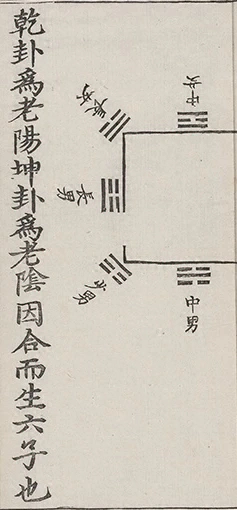 中女
長女
長男
少男
中男
乾卦爲老陽坤卦爲老陰因合而生六子也